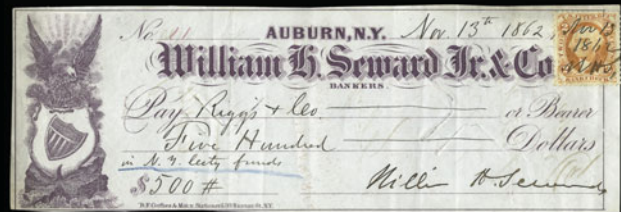 No. 11 AUBURN, N.Y. Nov. 13th 1862
Nov 13
1862
William H. Seward Jr. & Co
BANKERS.
Pay Riggs & Co or Bearer
Five Hundred Dollars
in N.Y. City funds
$500 #
William H. Seward